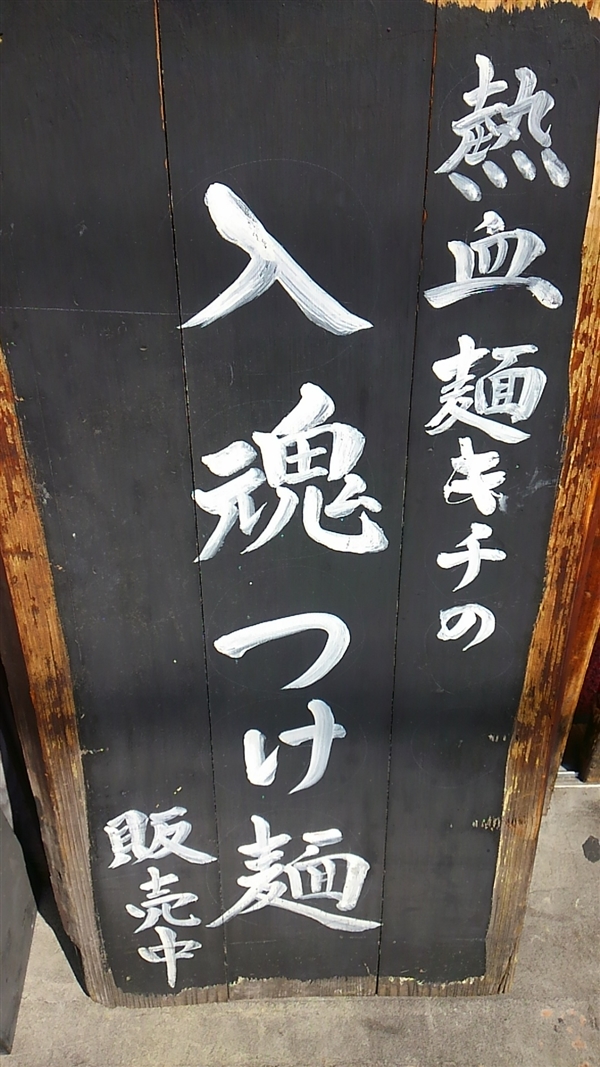 熱血麺キチの
入魂つけ麺
販売中